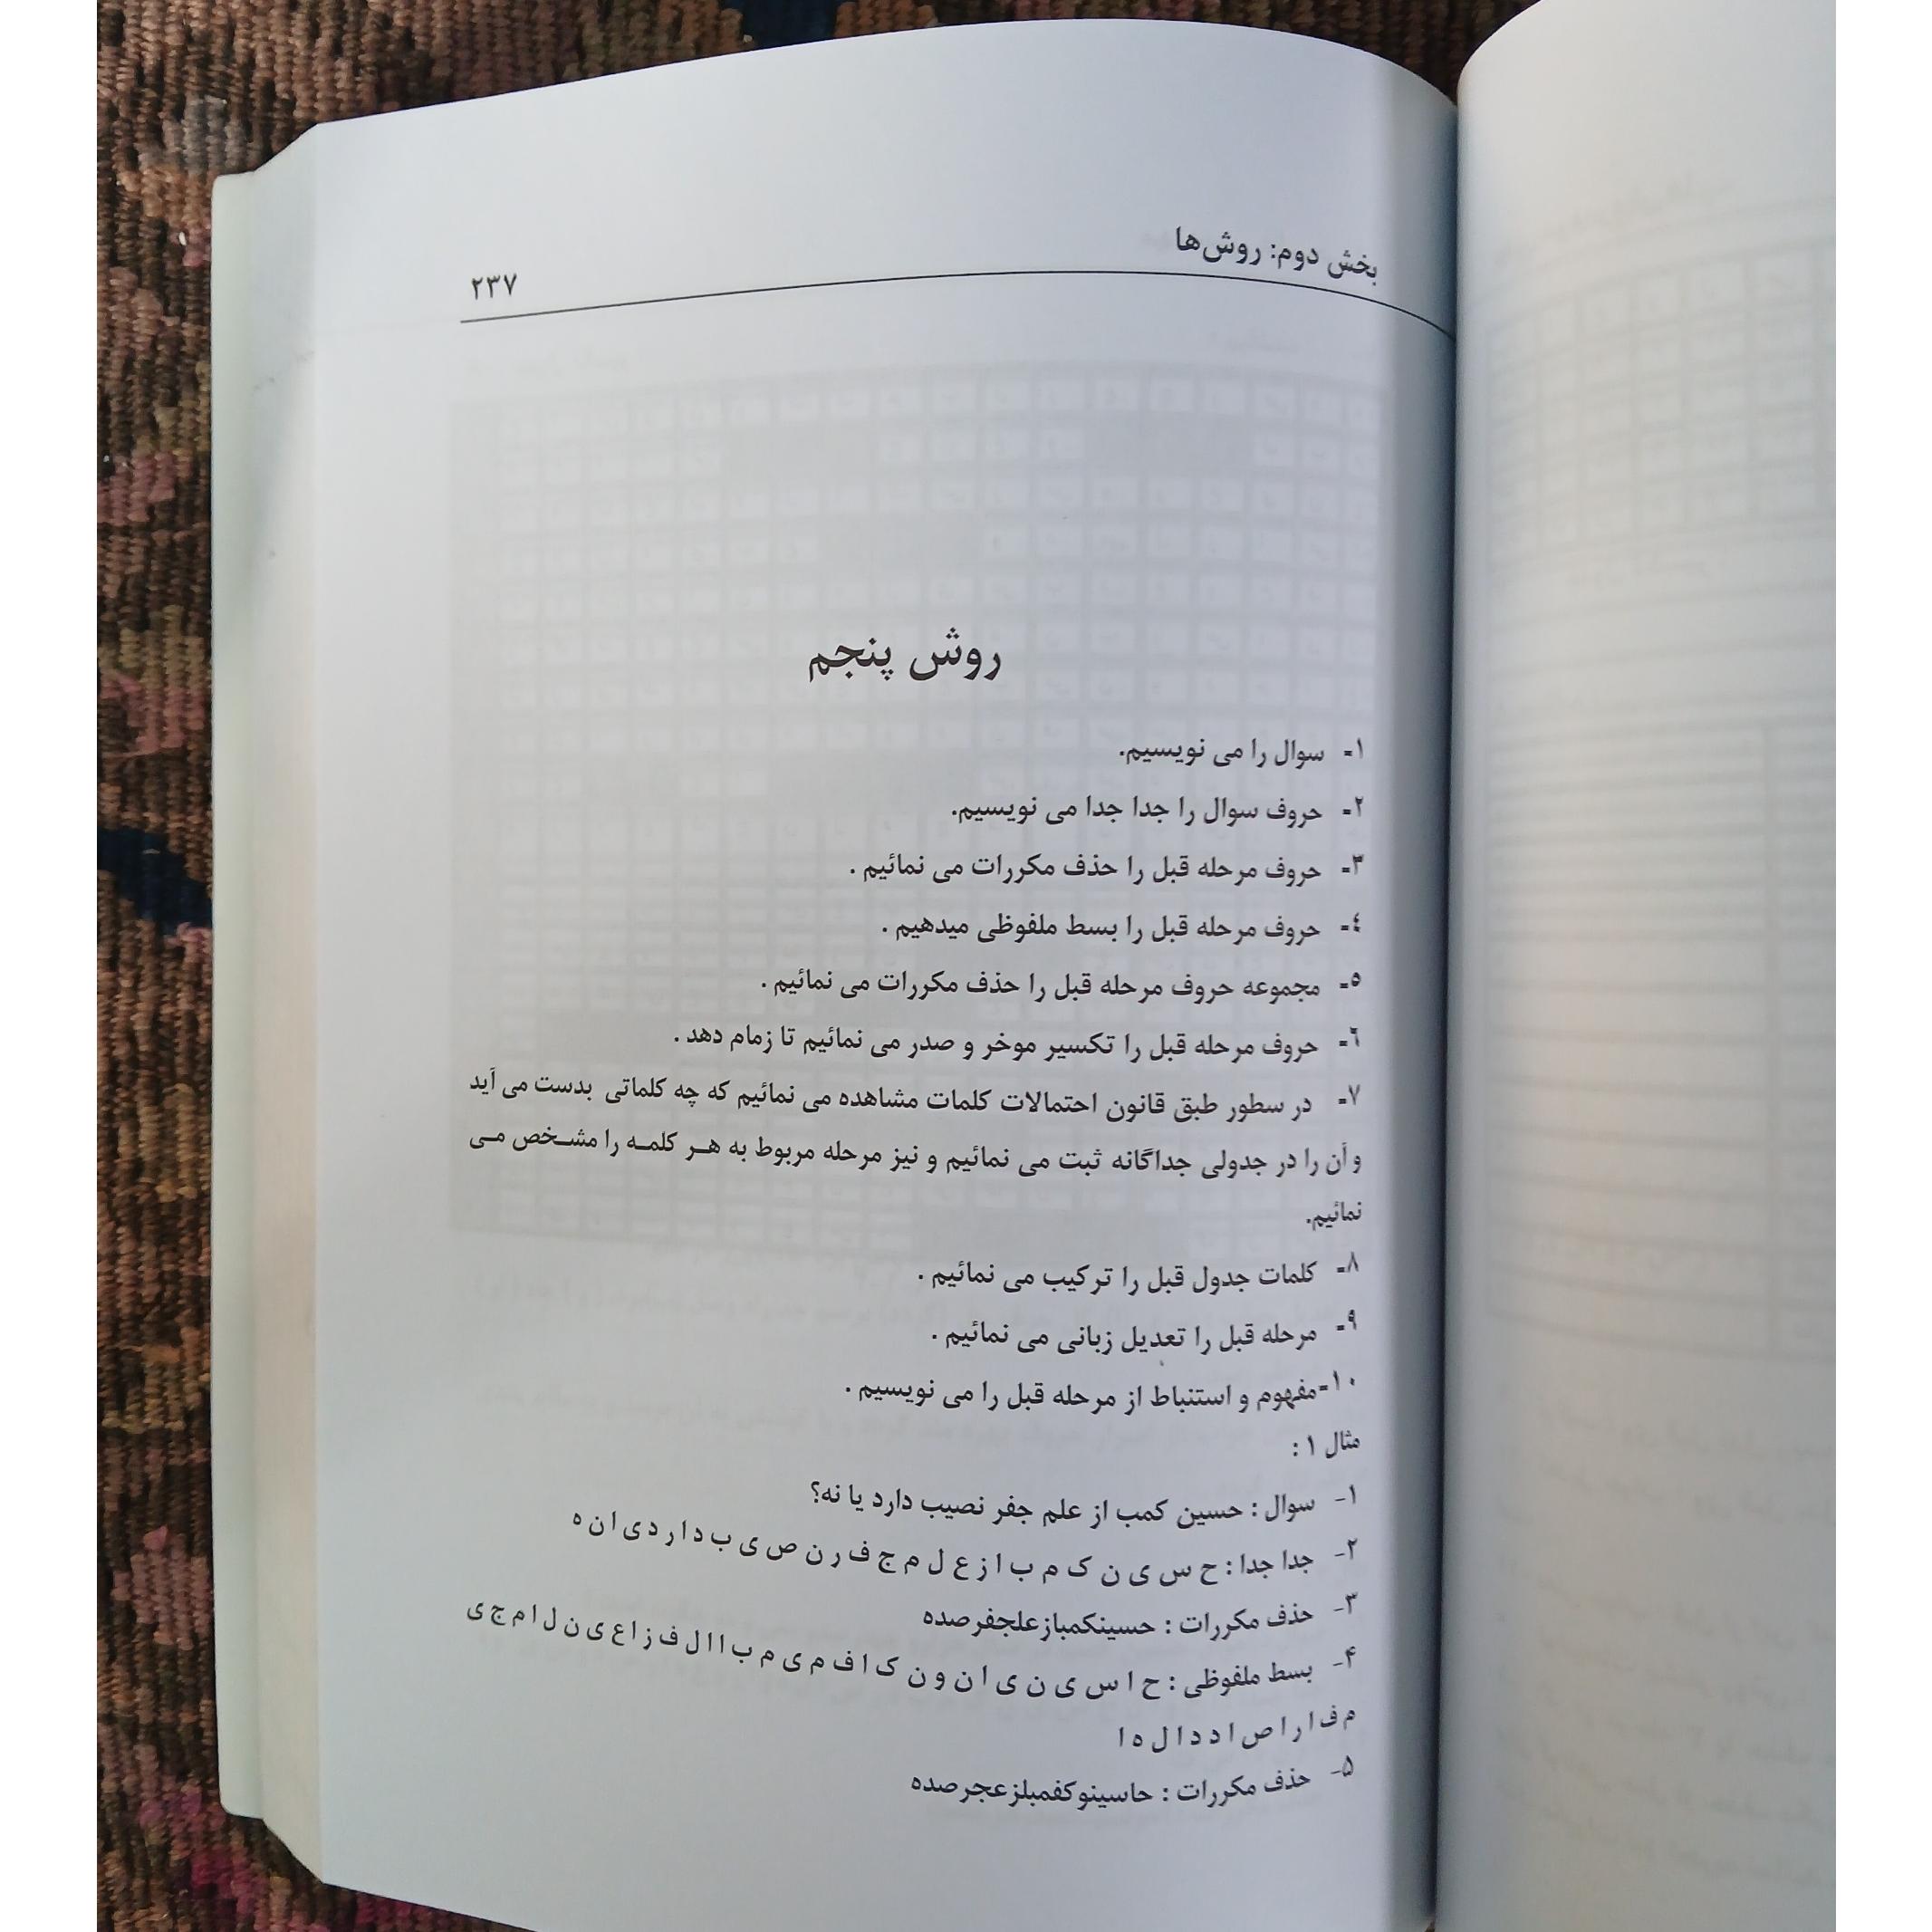 بخش دوم: روش‌ها
۲۳۷
روش پنجم
۱- سوال را می نویسیم.
۲- حروف سوال را جدا جدا می نویسیم.
۳- حروف مرحله قبل را حذف مکررات می نمائیم .
٤- حروف مرحله قبل را بسط ملفوظی میدهیم .
٥- مجموعه حروف مرحله قبل را حذف مکررات می نمائیم .
٦- حروف مرحله قبل را تکسیر موخر و صدر می نمائیم تا زمام دهد .
۷- در سطور طبق قانون احتمالات کلمات مشاهده می نمائیم که چه کلماتی بدست می آید
و آن را در جدولی جداگانه ثبت می نمائیم و نیز مرحله مربوط به هـر کلمـه را مشـخص مـی
نمائیم.
۸- کلمات جدول قبل را ترکیب می نمائیم .
۹- مرحله قبل را تعدیل زبانی می نمائیم .
۱۰-مفهوم و استنباط از مرحله قبل را می نویسیم .
مثال ۱ :
۱- سوال : حسین کمب از علم جفر نصیب دارد یا نه؟
۲- جدا جدا : ح س ی ن ک م ب ا ز ع ل م ج ف ر ن ص ی ب د ا ر د ی ا ن ه
۳- حذف مکررات : حسینکمبازعلجفرصده
۴- بسط ملفوظی : ح ا س ی ن ی ا ن و ن ک ا ف م ی م ب ا ا ل ف ز ا ع ی ن ل ا م ج ی
م ف ا ر ا ص ا د د ا ل ه ا
۵- حذف مکررات : حاسینوکفمبلزعجرصده